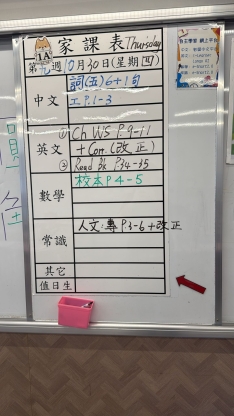 家課表 Thursday
1A
第九週 10月30日(星期四)
中文 詞(五)6+1句
工P.1-3
英文 ① Ch WS P.9-11
+ Corr.(改正)
② Read Bk P.34-35
數學 校本P4-5
常識 人文:專P.3-6+改正
其它
值日生